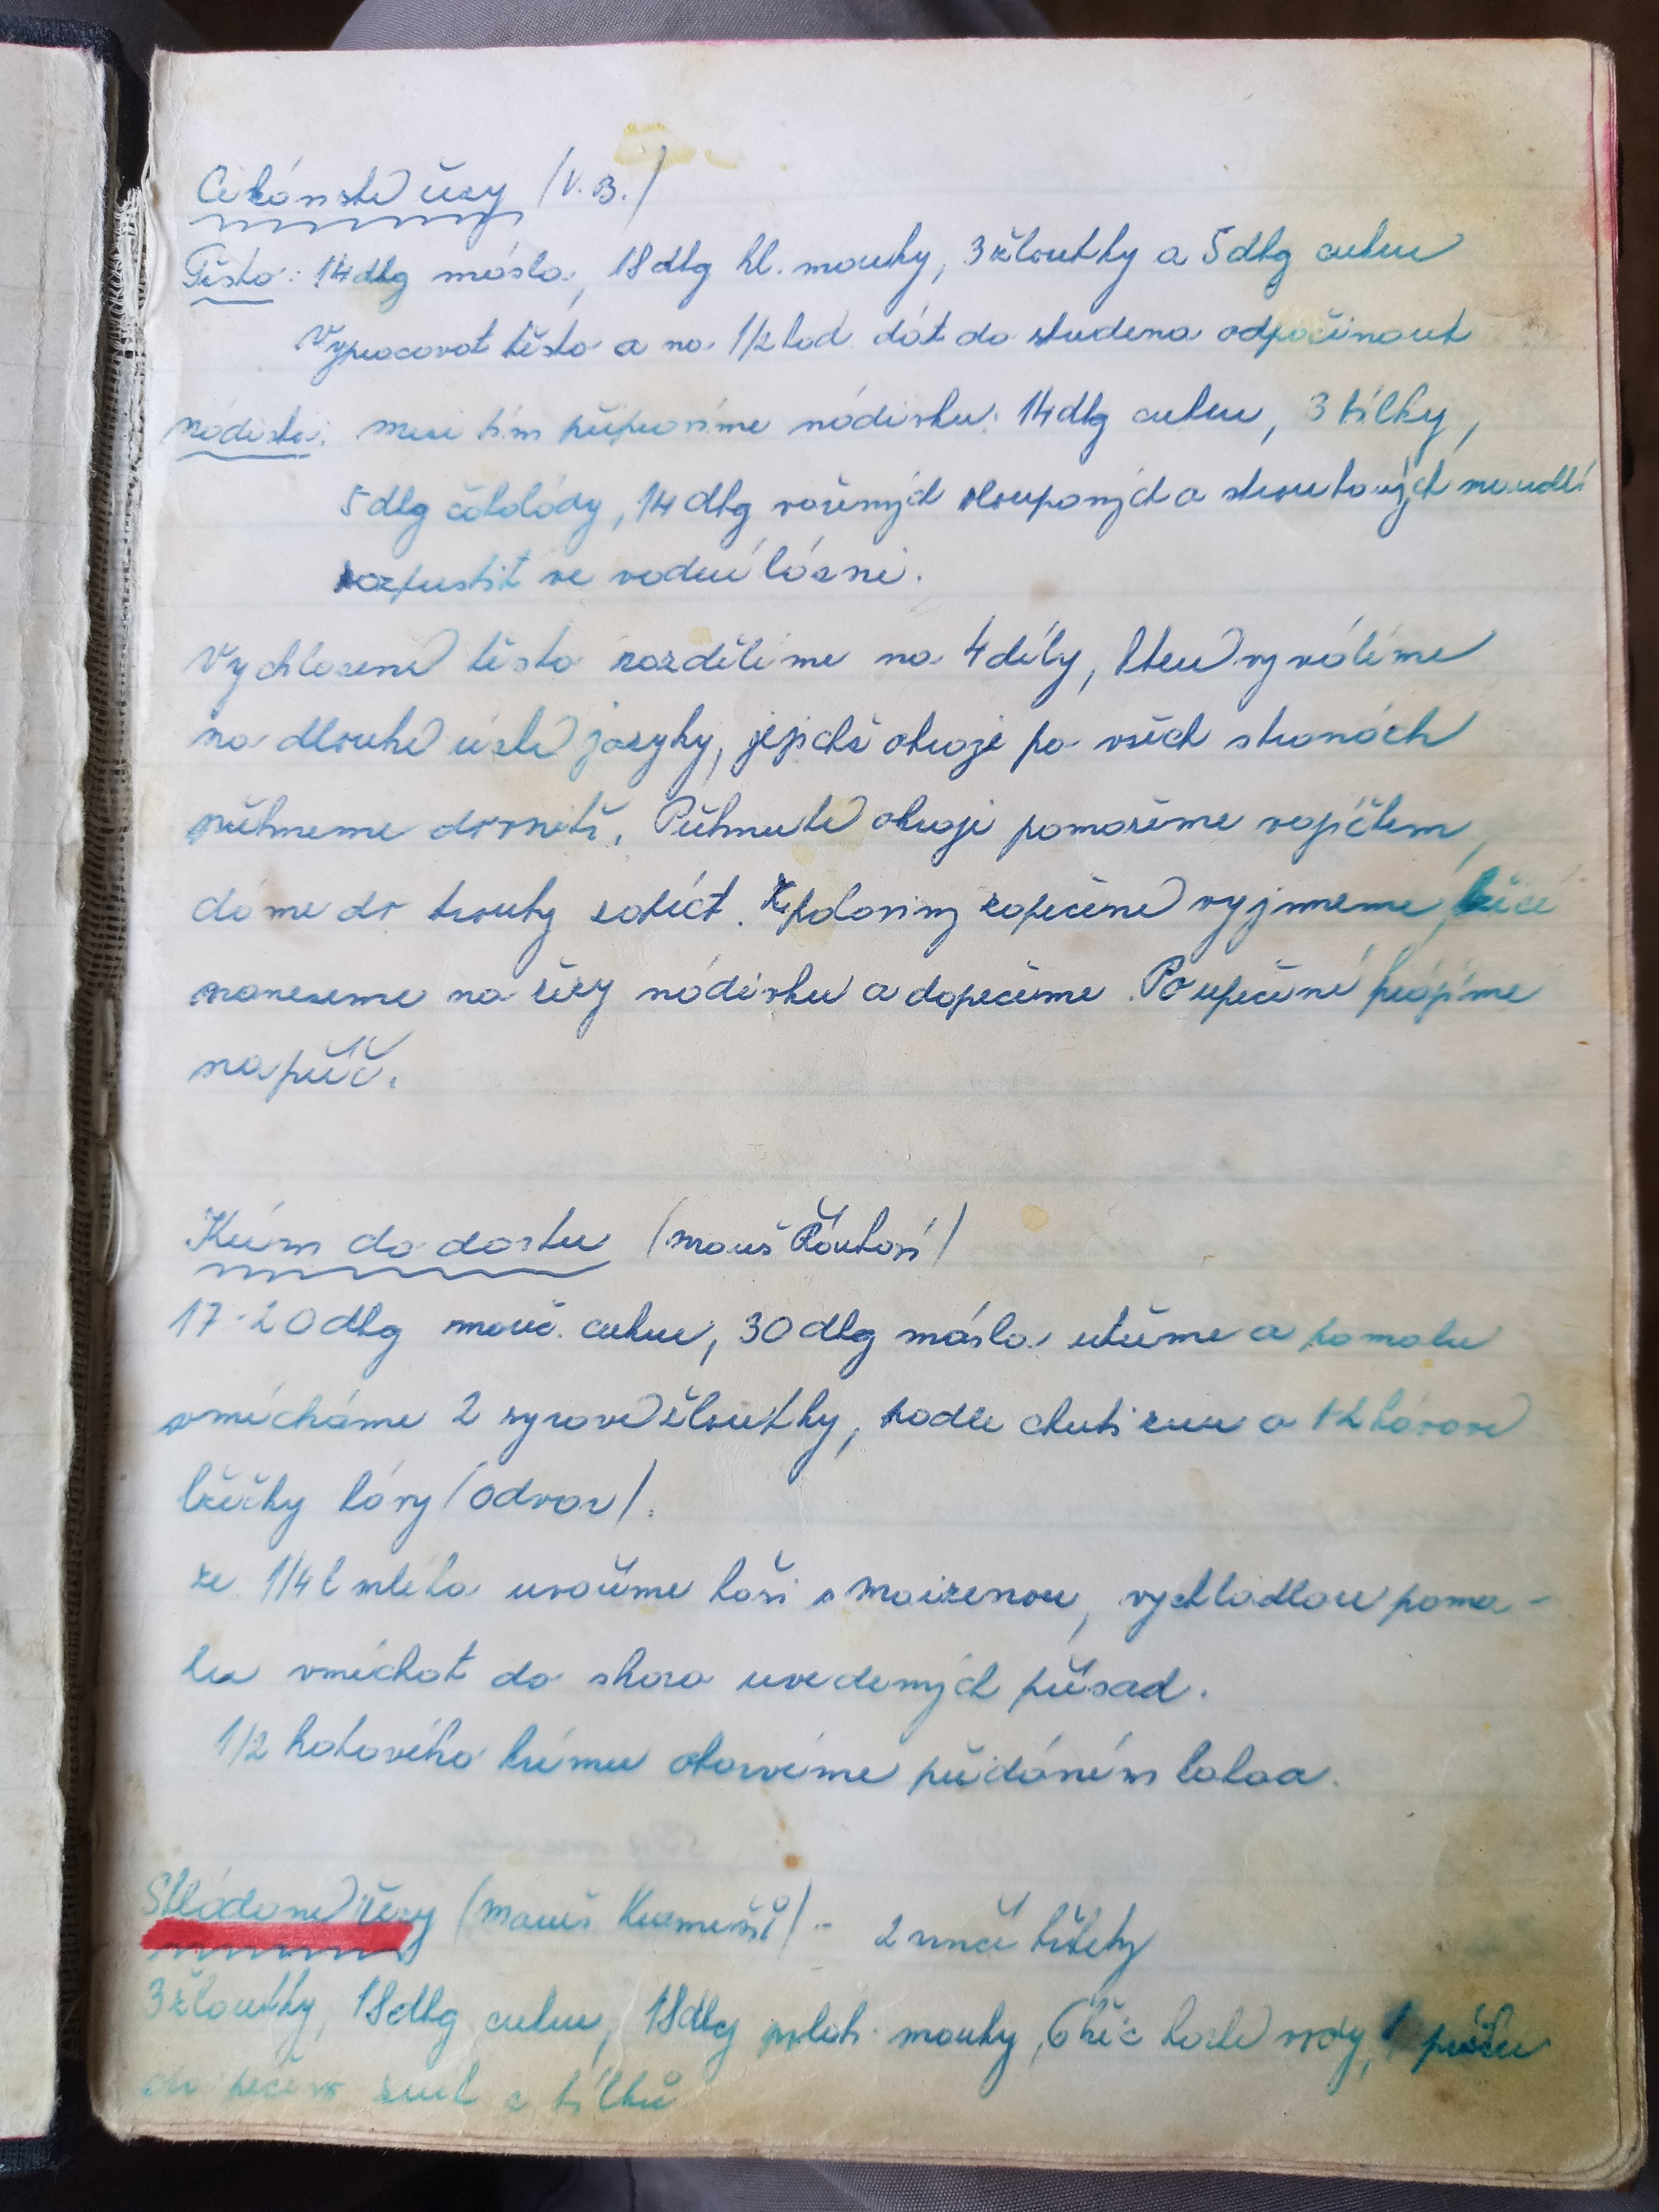 Cikánské řezy (V. B.)
Těsto: 14 dkg másla, 18 dkg hl. mouky, 3 žloutky a 5 dkg cukru
Vypracovat těsto a na 1/2 hod. dát do studena odpočinout
nádivka: mezi tím připravíme nádivku: 14 dkg cukru, 3 bílky,
5 dkg čokolády, 14 dkg vařených oloupaných a strouhaných mandlí
rozpustit ve vodní lázni.
Vychlazené těsto rozdělíme na 4 díly, které vyválíme
na dlouhé úzké jazyky, jejichž okraje po všech stranách
přehneme dovnitř. Přehnuté okraje pomažeme vajíčkem,
dáme do trouby zapéct. Z poloviny zapečené vyjmeme, lžící
naneseme na řezy nádivku a dopečeme. Po upečení krájíme
napříč.
Krém do dortu (maminš Říhová)
17-20 dkg mouč. cukru, 30 dkg másla utřeme a pomalu
vmícháme 2 syrové žloutky, podle chuti rum a 1-2 kávové
lžičky kávy (odvar).
ze 1/4 l mléka uvaříme kaši s maizenou, vychladlou poma-
lu vmíchat do shora uvedených přísad.
1/2 hotového krému obarvíme přidáním kakaa.
Skládané řezy
3 žloutky, 18 dkg cukru, 18 dkg poloh. mouky, 6 lžic horké vody, 1 prášku
do pečiva sníh z bílků